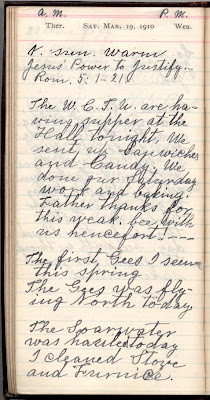 A. M. P. M.
Ther. SAT. MAR. 19, 1910 Wea.
Sun. Warm
Jesus' Power to Justify.-
Rom. 5: 1-21
The W. C. T. U. are ha-
ving supper at the
Hall tonight. We
sent up Sanwiches
and Candy. We
done our Saturday
work and baking.
Father thanks for
this weak. bee with
us hencefort! ----
The first Gees I seen
this spring
The Gees was fly-
ing North today
The Soarwater
was hauled today
I cleaned Stove
and Furnice.